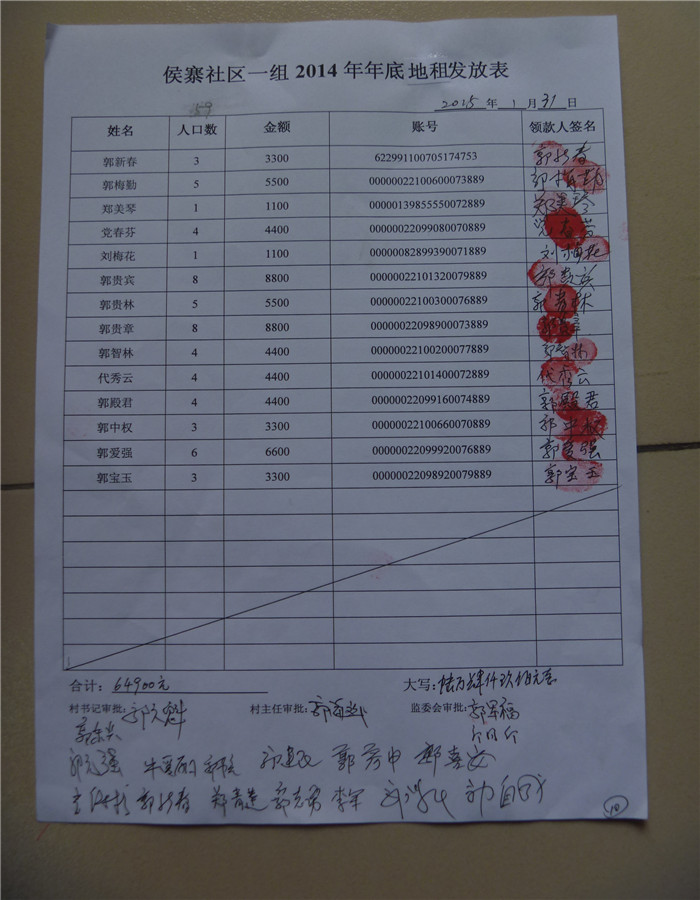 侯寨社区一组 2014 年年底地租发放表
59
2015 年 1 月 31 日
姓名 人口数 金额 账号 领款人签名
郭新春 3 3300 622991100705174753 郭新春
郭梅勤 5 5500 00000022100600073889 郭梅勤
郑美琴 1 1100 00000139855550072889 郑美琴
党春芬 4 4400 00000022099080070889 党春芬
刘梅花 1 1100 00000082899390071889 刘梅花
郭贵宾 8 8800 00000022101320079889 郭贵宾
郭贵林 5 5500 00000022100300076889 郭贵林
郭贵章 8 8800 00000022098900073889 郭贵章
郭智林 4 4400 00000022100200077889 郭智林
代秀云 4 4400 00000022101400072889 代秀云
郭殿君 4 4400 00000022099160074889 郭殿君
郭中权 3 3300 00000022100660070889 郭中权
郭爱强 6 6600 00000022099920076889 郭爱强
郭宝玉 3 3300 00000022098920079889 郭宝玉
合计: 64900元 大写: 陆万肆仟玖佰元正
村书记审批: 村主任审批: 监委会审批: 郭军福
郭新春 李军
10